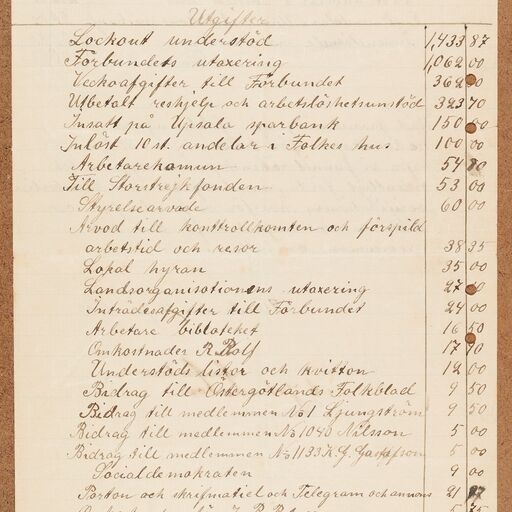 Utgifter
Lockout understöd 1,433 87
Förbundets utaxering 1,062 00
Veckoafgifter till Förbundet 362
Utbetalt reshjelp och arbetslöshetsunstöd 323 70
Insatt på Upsala sparbank 150 50
Inlöst 10 st. andelar i Folkes hus 100 00
Arbetarekomun 54
Till Storstrejkfonden 53 00
Styrelsearvode 60 00
Arvod till kontrollkomten och förspild
arbetstid och resor 38 35
Lokal hyran 35 00
Landsorganisationens utaxering 27
Inträdesafgifter till Förbundet 24 00
Arbetare biblioteket 16 50
Omkostnader R. Rolf 17
Understöds listor och kvitton 12 00
Bidrag till Östergötlands Folkblad 9 50
Bidrag till medlemmen No 1 Ljungström 9 50
Bidrag till medlemmen No 1040 Nilsson 5 00
Bidrag till medlemmen No 1133 K. G. Gustafsson 5 00
Socialdemokraten 9 00
Porton och skrifmatiel och Telegram och annons 21